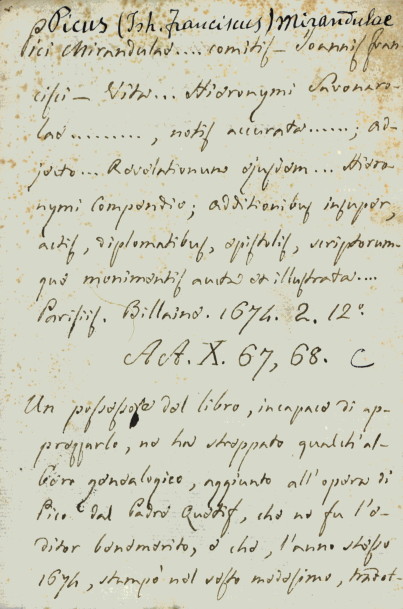 Picus (Joh. Franciscus) Mirandulae
Pici Mirandulae .... comitis – Joannis Fran-
cisci – Vita ... Hieronymi Savonaro-
lae ........., notis accurata ......; ad-
jecto ... Revelationum ejusdem ... Hiero-
nymi Compendio; additionibus insuper,
actis, diplomatibus, epistolis, scriptorum-
que monimentis aucta et illustrata ....
Parisiis. Billaine. 1674. 2. 12°.
AA. X. 67, 68. C
Un possessore del libro, incapace di ap-
prezzarlo, ne ha strappato qualch'al-
bero genealogico, aggiunto all'opera di
Pico dal Padre Quétif, che ne fu l'e-
ditor benemerito, e che, l'anno stesso
1674, stampò nel sesto medesimo, tradot-